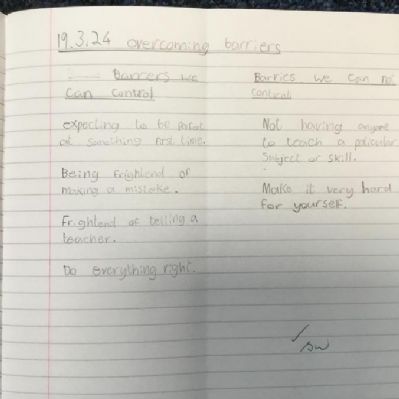 19.3.24 overcoming barriers
Barriers we
can control
expecting to be
at something first time.
Being frightend of
making a mistake.
Frightend of telling a
teacher.
Do everything right.
Barries we can not
control
Not having anyone
to teach a paticular
Subject or skill.
Make it very hard
for yourself.